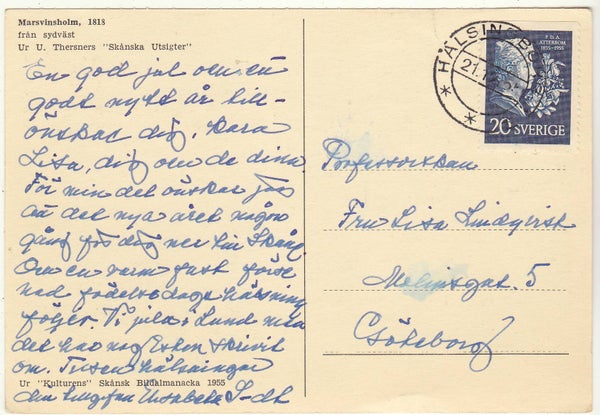 Marsvinsholm, 1818
från sydväst
Ur U. Thersners "Skånska Utsigter"
En god jul och en
godt nytt år till-
önskas dig, kära
Lisa, dig och de dina.
För min del önskar jag
att det nya året någon
gång för dig ner till Skåne
Om en varm fast förse
nad födelsedags hälsning
följer. Vi i Lund
det har nog Esken skrivit
om. Tusen hälsningar
din Elisabeth
Ur "Kulturens" Skånsk Bildalmanacka 1955
HÄLSINGBORG
21.12
P.D.A. ATTERBOM
1855-1955
20 SVERIGE
Professorskan
Fru Lisa Lindqvist
Molinsgat. 5
Göteborg